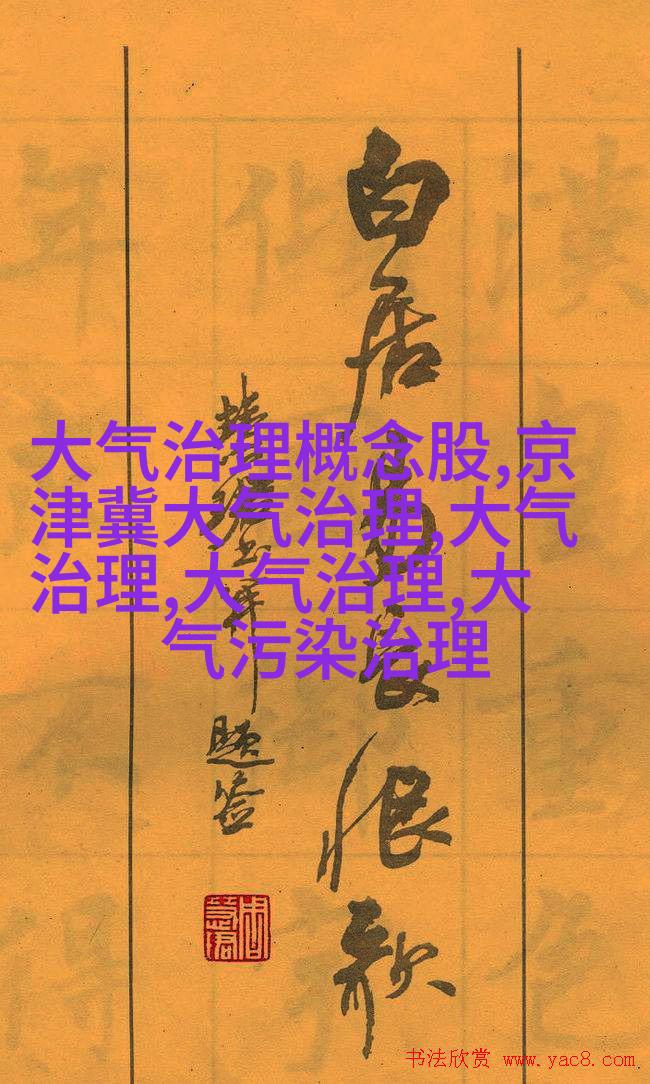 白居易长恨歌
题签
大气治理概念股,京
津冀大气治理,大气
治理,大气治理,大
气污染治理
书法欣赏 www.yac8.com